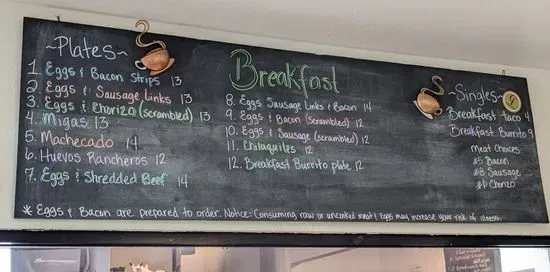 ~Plates~
1. Eggs & Bacon Strips 13
2. Eggs & Sausage Links 13
3. Eggs & Chorizo (scrambled) 13
4. Migas 13
5. Machecado 14
6. Huevos Rancheros 12
7. Eggs & Shredded Beef 14
Breakfast
8. Eggs Sausage Links & Bacon 14
9. Eggs & Bacon (scrambled) 12
10. Eggs & Sausage (scrambled) 12
11. Chilaquiles 12
12. Breakfast Burrito plate 12
~Singles~
Breakfast Taco 4
Breakfast Burrito 9
Meat Choices
Bacon
Sausage
Chorizo
* Eggs & Bacon are prepared to order. Notice: Consuming raw or uncooked meat & Eggs may increase your risk of illness.